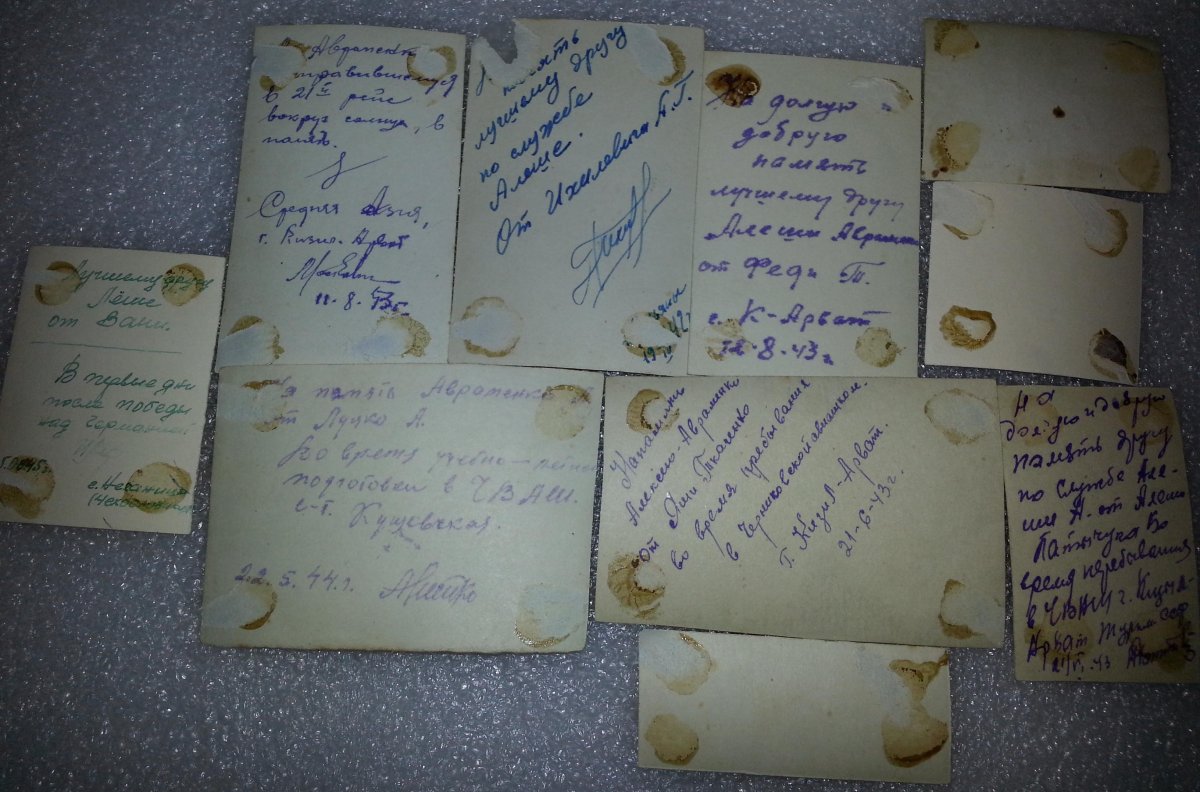 Лучшему другу
Лёше
от Вани.
В первые дни
после победы
над германией
в 21й рейс
вокруг солнца, в
память.
Средняя Азия,
г. Кизил-Арват
11-8-43г.
память
лучшему другу
по службе
Алеше.
От Ихилевича А.Г.
На долгую и
доброю
память
лучшему другу
Алеши
от Феди Т.
г. К-Арват
12-8-43г
На память Авраменко
от Луцко А.
Во время учебно-летной
подготовки в ЧВАШ.
с-т. Кущевская.
22.5.44г.
Напамянь
Алексею Авраменко
От Яши Ткаленко
во время пребывания
в Черниговской авиашкол.
Г. Кизил-Арват.
21-6-43г.
На
долгую и доброю
память другу
по службе Але-
ши А. от Алеши
время перебывания
в ЧВАШ г. Кизил
Арват Туркм ССР